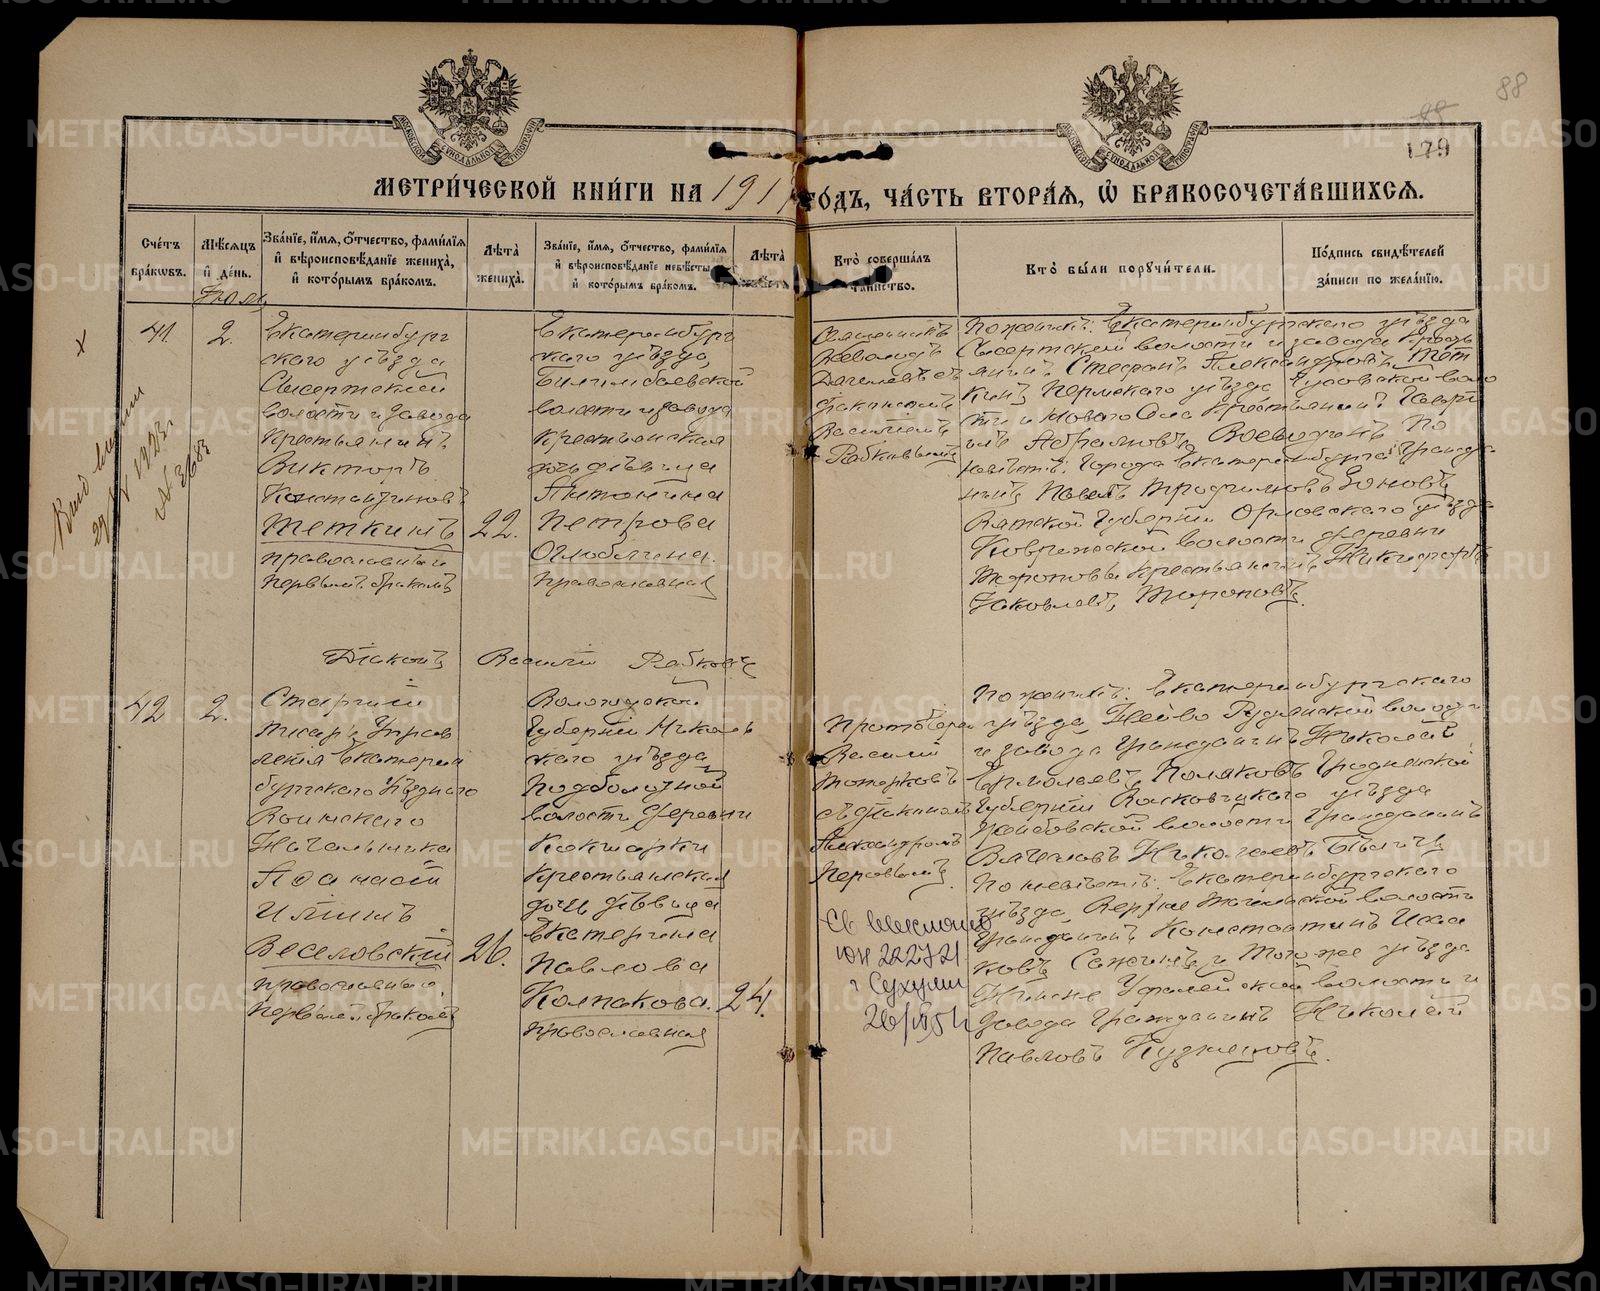 МЕТРИ́ЧЕСКОЙ КНИ́ГИ НА 191 ГО́ДЪ, ЧА́СТЬ ВТОРА́Я, Ѡ҆ БРАКОСОЧЕТА́ВШИХСЯ.
88
179
Сче́тъ бра́кѡвъ.
Мѣ́сяцъ и҆ де́нь.
Зва́нїе, и҆́мя, ѻ҆́тчество, фами́лїя и҆ вѣроисповѣ́данїе жениха̀, и҆ кото́рымъ бра́комъ.
Лѣта̀ жениха̀.
Зва́нїе, и҆́мя, ѻ҆́тчество, фами́лїя и҆ вѣроисповѣ́данїе невѣ́сты и҆ кото́рымъ бра́комъ.
Лѣта̀
Кто̀ соверша́лъ та́инство.
Кто̀ бы́ли поручи́тели.
По́дпись свидѣ́телей за́писи по жела́нїю.
41
2.
Екатеринбург
скаго уѣзда,
Сысертской
волости и завода
крестьянинъ
Викторъ
Константиновъ
Теткинъ
православный
первымъ бракомъ
22.
Екатеринбург
скаго уѣзда,
Билимбаевской
волости и завода
крестьянская
дочь дѣвица
Антонина
Петрова
Оглоблина.
православная
Священникъ
Всеволодъ
діакономъ
Василіемъ
Рябковымъ
По женихѣ: Екатеринбургскаго уѣзда
Сысертской волости и завода кресть
янинъ Стефанъ Александровъ Тет
кинъ Пермскаго уѣзда
сти и Новаго Села крестьянинъ Гаврі
илъ Абрамовъ По
невѣстѣ: города Екатеринбурга гражда
нинъ Павелъ Трофимовъ
Вятской губерніи Орловскаго уѣзда
волости деревни
Тороповы крестьянинъ Никифоръ
Яковлевъ Тороповъ.
Діаконъ Василій Рябковъ
42
2.
Старшій
писарь Управ
ленія Екатерин
бургскаго Уѣзднаго
Воинскаго
Начальника
Аѳанасій
Ильинъ
Веселовскій
православный,
первымъ бракомъ
26.
Вологодской
губерніи Николь
скаго уѣзда
Подболотной
волости деревни
Кокшарки
крестьянская
дочь дѣвица
Екатерина
Павлова
Колпакова.
православная
24.
Протоіерей
Василій
Топорковъ
съ діакономъ
Александромъ
По женихѣ: Екатеринбургскаго
уѣзда Нейво Рудянской волости
и завода гражданинъ Николай
Ермолаевъ Поляковъ Гродненской
губерніи Волковыскаго уѣзда
волости гражданинъ
Николаевъ
По невѣстѣ: Екатеринбургскаго
уѣзда, Верхне Тагильской волости
гражданинъ Константинъ Исаа
ковъ того же уѣзда
Нижне Уфалейской волости и
завода гражданинъ Николай
Павловъ Кузнецовъ.
г Сухуми
METRIKI.GASO-URAL.RU